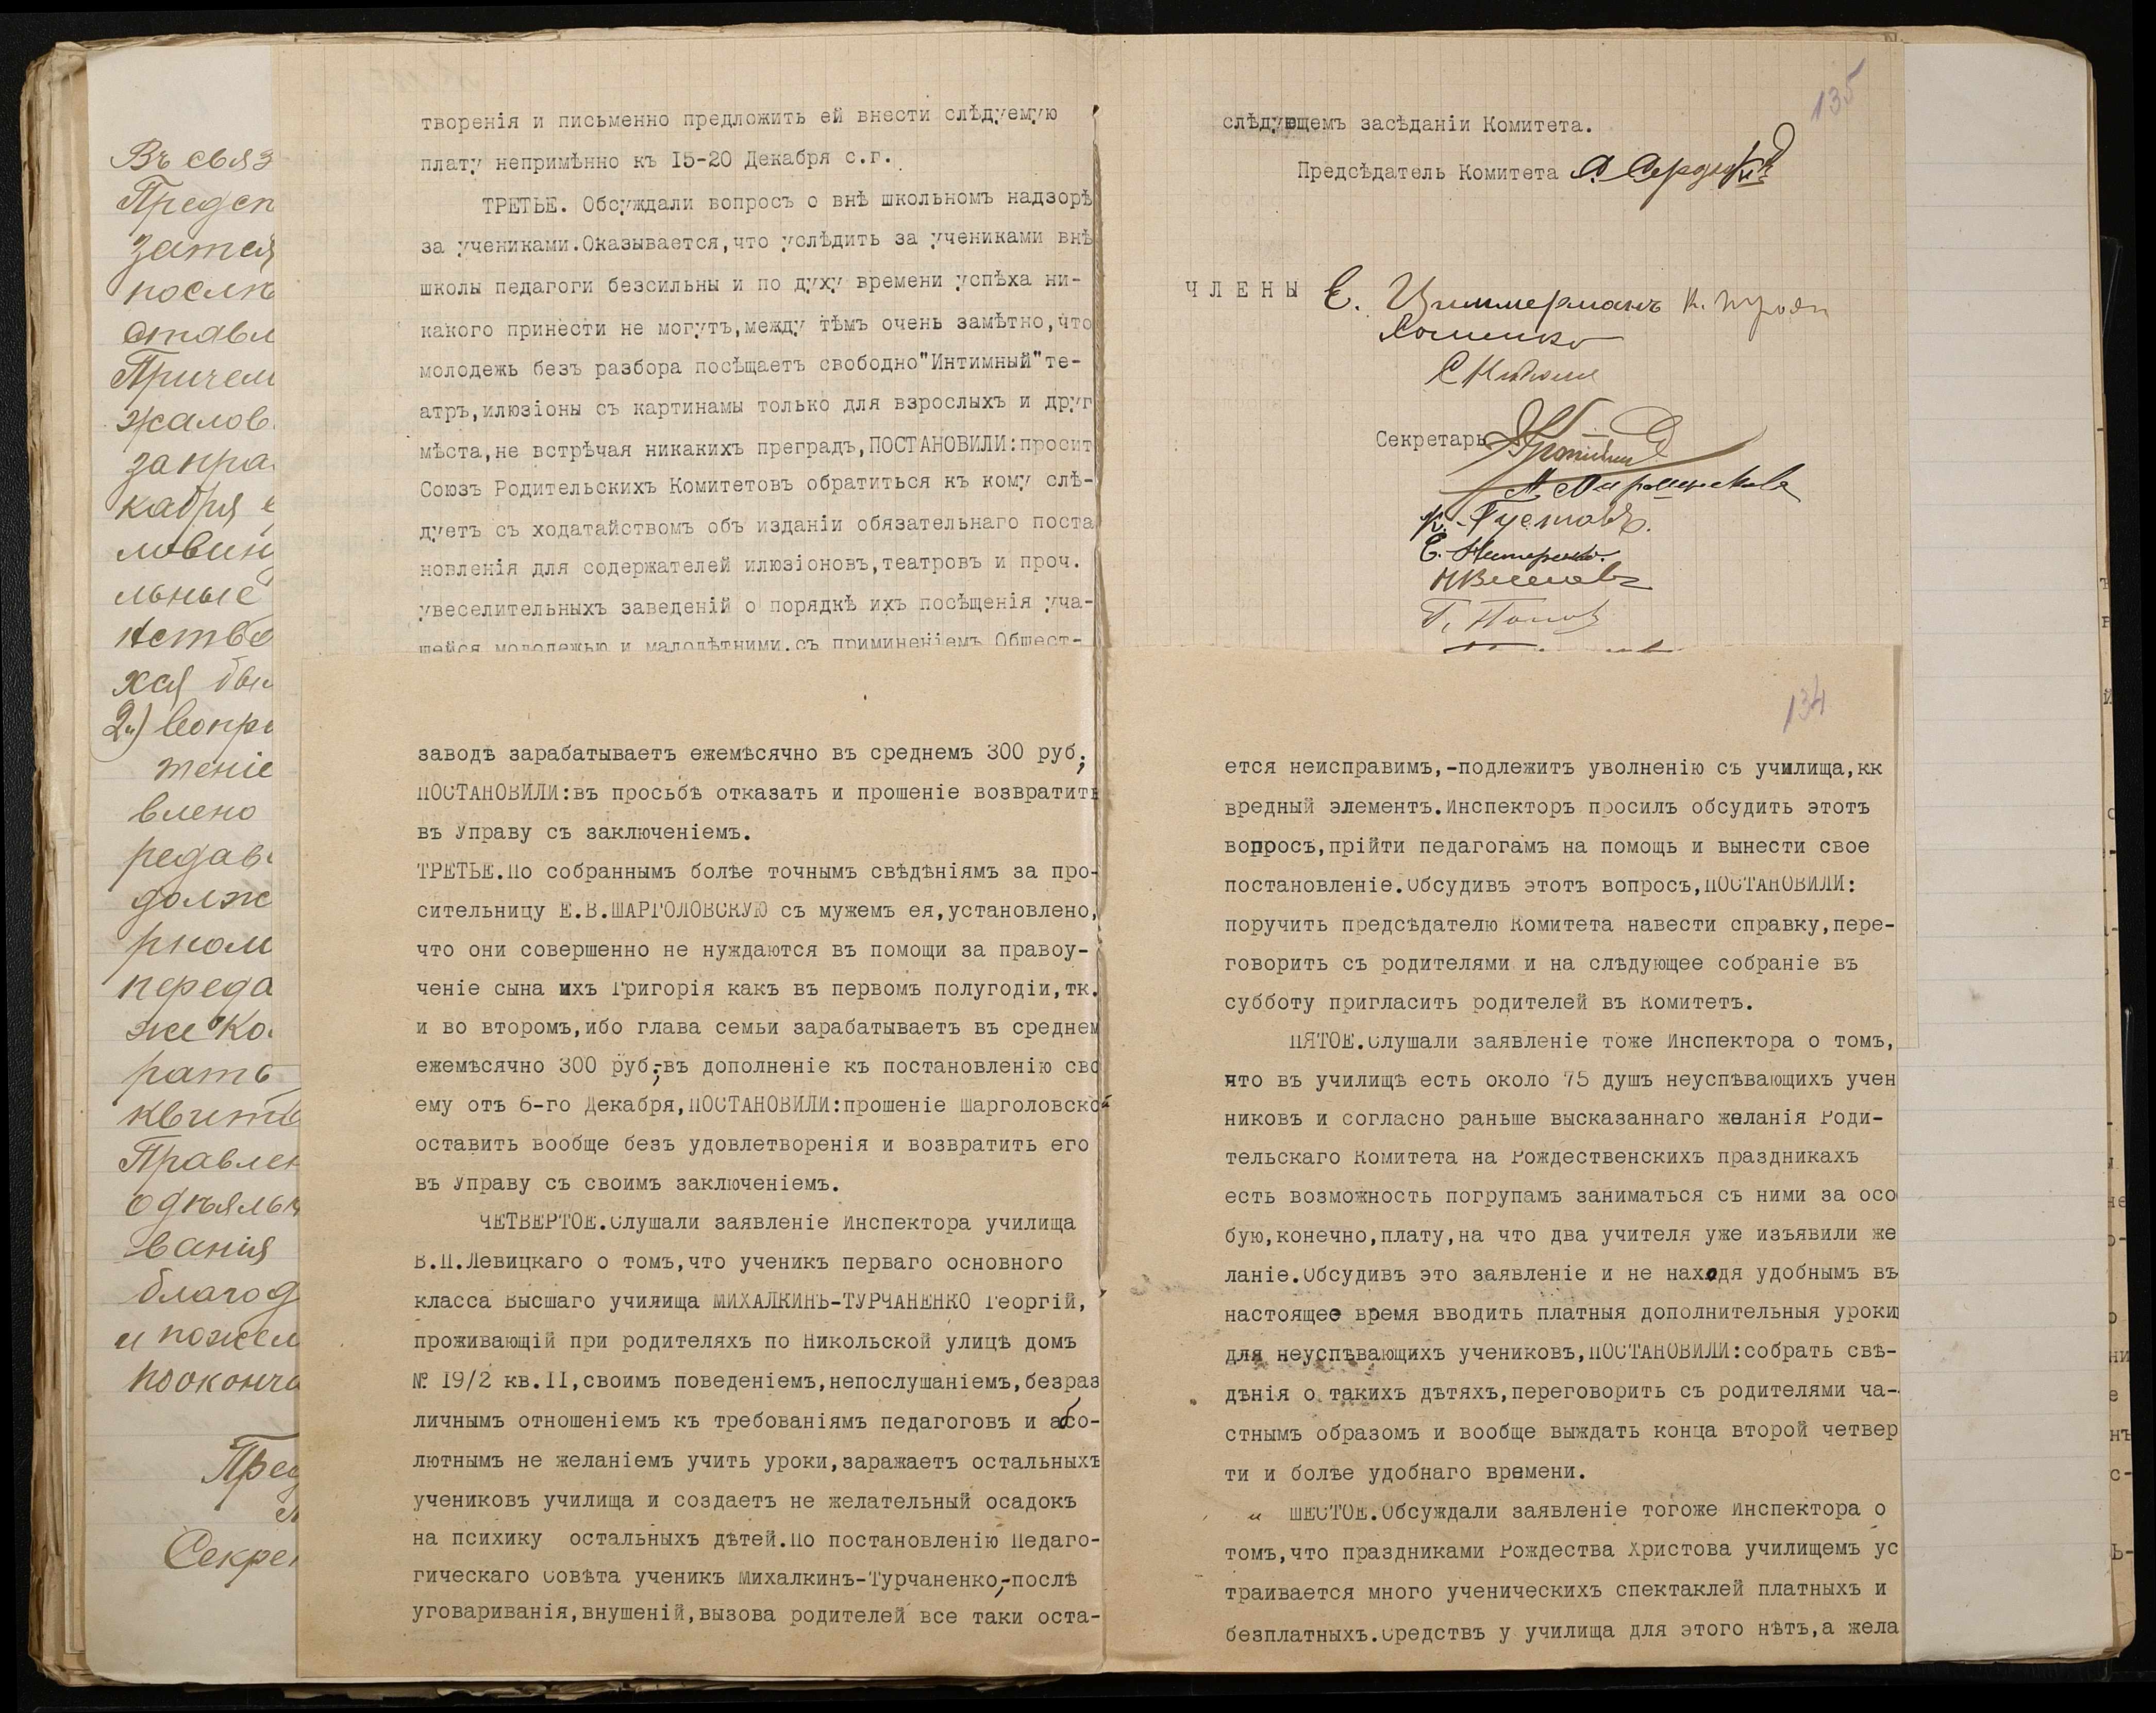 Въ связ
Предсѣ
зател
послѣ
ставл
Причем
жалов
запра
кабря
ловин
льные
нство
кая бы
2.) Вопр
теніе
влено
редав
долж
рном
переда
же Ко
рать
квит
Правлен
одѣял
ванія
благод
и пожел
по оконча
Пред
Секре
творенія и письменно предложить ей внести слѣдуемую
плату непримѣнно къ I5-20 Декабря с.г.
ТРЕТЬЕ. Обсуждали вопросъ о внѣ школьномъ надзорѣ
за учениками.Оказывается,что услѣдить за учениками внѣ
школы педагоги безсильны и по духу времени успѣха ни-
какого принести не могутъ,между тѣмъ очень замѣтно,что
молодежь безъ разбора посѣщаетъ свободно"Интимный"те-
атръ,илюзіоны съ картинамы только для взрослыхъ и друг
мѣста,не встрѣчая никакихъ преградъ,ПОСТАНОВИЛИ:просит
Союзъ Родительскихъ Комитетовъ обратиться къ кому слѣ-
дуетъ съ ходатайствомъ объ изданіи обязательнаго поста
новленія для содержателей илюзіоновъ,театровъ и проч.
увеселительныхъ заведеній о порядкѣ ихъ посѣщенія уча-
щейся молодежью и малолѣтними.съ приминеніемъ Общест-
заводѣ зарабатываетъ ежемѣсячно въ среднемъ 300 руб;
ПОСТАНОВИЛИ:въ просьбѣ отказать и прошеніе возвратить
въ Управу съ заключеніемъ.
ТРЕТЬЕ.По собраннымъ болѣе точнымъ свѣдѣніямъ за про-
сительницу Е.В.ШАРГОЛОВСКУЮ съ мужемъ ея,установлено,
что они совершенно не нуждаются въ помощи за правоу-
ченіе сына ихъ Григорія какъ въ первомъ полугодіи,тк.
и во второмъ,ибо глава семьи зарабатываетъ въ среднем
ежемѣсячно 300 руб;-въ дополненіе къ постановленію сво
ему отъ 6-го Декабря,ПОСТАНОВИЛИ:прошеніе Шарголовской
оставить вообще безъ удовлетворенія и возвратить его
въ Управу съ своимъ заключеніемъ.
ЧЕТВЕРТОЕ.Слушали заявленіе Инспектора училища
В.П.Левицкаго о томъ,что ученикъ перваго основного
класса Высшаго училища МИХАЛКИНЪ-ТУРЧАНЕНКО Георгій,
проживающій при родителяхъ по Никольской улицѣ домъ
№ I9/2 кв.II,своимъ поведеніемъ,непослушаніемъ,безраз
личнымъ отношеніемъ къ требованіямъ педагоговъ и абсо-
лютнымъ не желаніемъ учить уроки,заражаетъ остальныхъ
учениковъ училища и создаетъ не желательный осадокъ
на психику остальныхъ дѣтей.По постановленію Педаго-
гическаго Совѣта ученикъ Михалкинъ-Турчаненко,-послѣ
уговариванія,внушеній,вызова родителей все таки оста-
135
слѣдующемъ засѣданіи Комитета.
Предсѣдатель Комитета
ЧЛЕНЫ Е. Циммерманъ
Секретарь
С. Нестеренко.
П. Попов
134
ется неисправимъ,-подлежитъ уволненію съ училища,кк
вредный элементъ.Инспекторъ просилъ обсудить этотъ
вопросъ,прійти педагогамъ на помощь и вынести свое
постановленіе.Обсудивъ этотъ вопросъ,ПОСТАНОВИЛИ:
поручить предсѣдателю Комитета навести справку,пере-
говорить съ родителями и на слѣдующее собраніе въ
субботу пригласить родителей въ Комитетъ.
ПЯТОЕ.Слушали заявленіе тоже Инспектора о томъ,
что въ училищѣ есть около 75 душъ неуспѣвающихъ учен
никовъ и согласно раньше высказаннаго желанія Роди-
тельскаго Комитета на Рождественскихъ праздникахъ
есть возможность погрупамъ заниматься съ ними за осо
бую,конечно,плату,на что два учителя уже изъявили же
ланіе.Обсудивъ это заявленіе и не находя удобнымъ въ
настоящее время вводить платныя дополнительныя уроки
для неуспѣвающихъ учениковъ,ПОСТАНОВИЛИ:собрать свѣ-
дѣнія о такихъ дѣтяхъ,переговорить съ родителями ча-
стнымъ образомъ и вообще выждать конца второй четвер
ти и болѣе удобнаго времени.
" ШЕСТОЕ.Обсуждали заявленіе тогоже Инспектора о
томъ,что праздниками Рождества Христова училищемъ ус
траивается много ученическихъ спектаклей платныхъ и
безплатныхъ.Средствъ у училища для этого нѣтъ,а жела